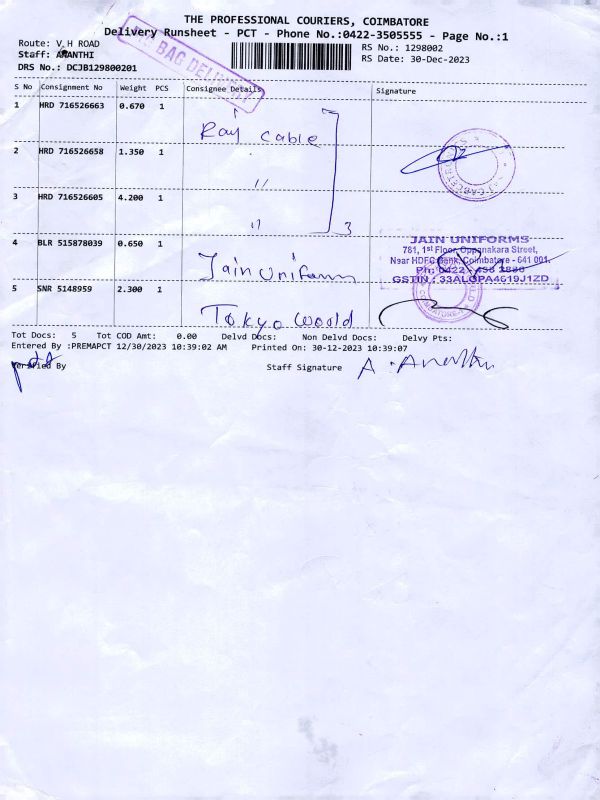 THE PROFESSIONAL COURIERS, COIMBATORE
Delivery Runsheet - PCT - Phone No.:0422-3505555 - Page No.:1
Route: V H ROAD
RS No.: 1298002
Staff: ANANTHI
RS Date: 30-Dec-2023
DRS No.: DCJB129800201
BAG DELIVERY
S No Consignment No Weight PCS Consignee Details Signature
1 HRD 716526663 0.670 1
Ray Cable
2 HRD 716526658 1.350 1
"
3 HRD 716526605 4.200 1
" 3
4 BLR 515878039 0.650 1
Jain Uniforms
JAIN UNIFORMS
781, 1st Floor, Oppanakara Street,
Near HDFC Bank, Coimbatore - 641 001.
GSTIN : 33ALOPA4619J1ZD
5 SNR 5148959 2.300 1
Tokyo World
Tot Docs: 5 Tot COD Amt: 0.00 Delvd Docs: Non Delvd Docs: Delvy Pts:
Entered By :PREMAPCT 12/30/2023 10:39:02 AM Printed On: 30-12-2023 10:39:07
Verified By Staff Signature A. Ananthi